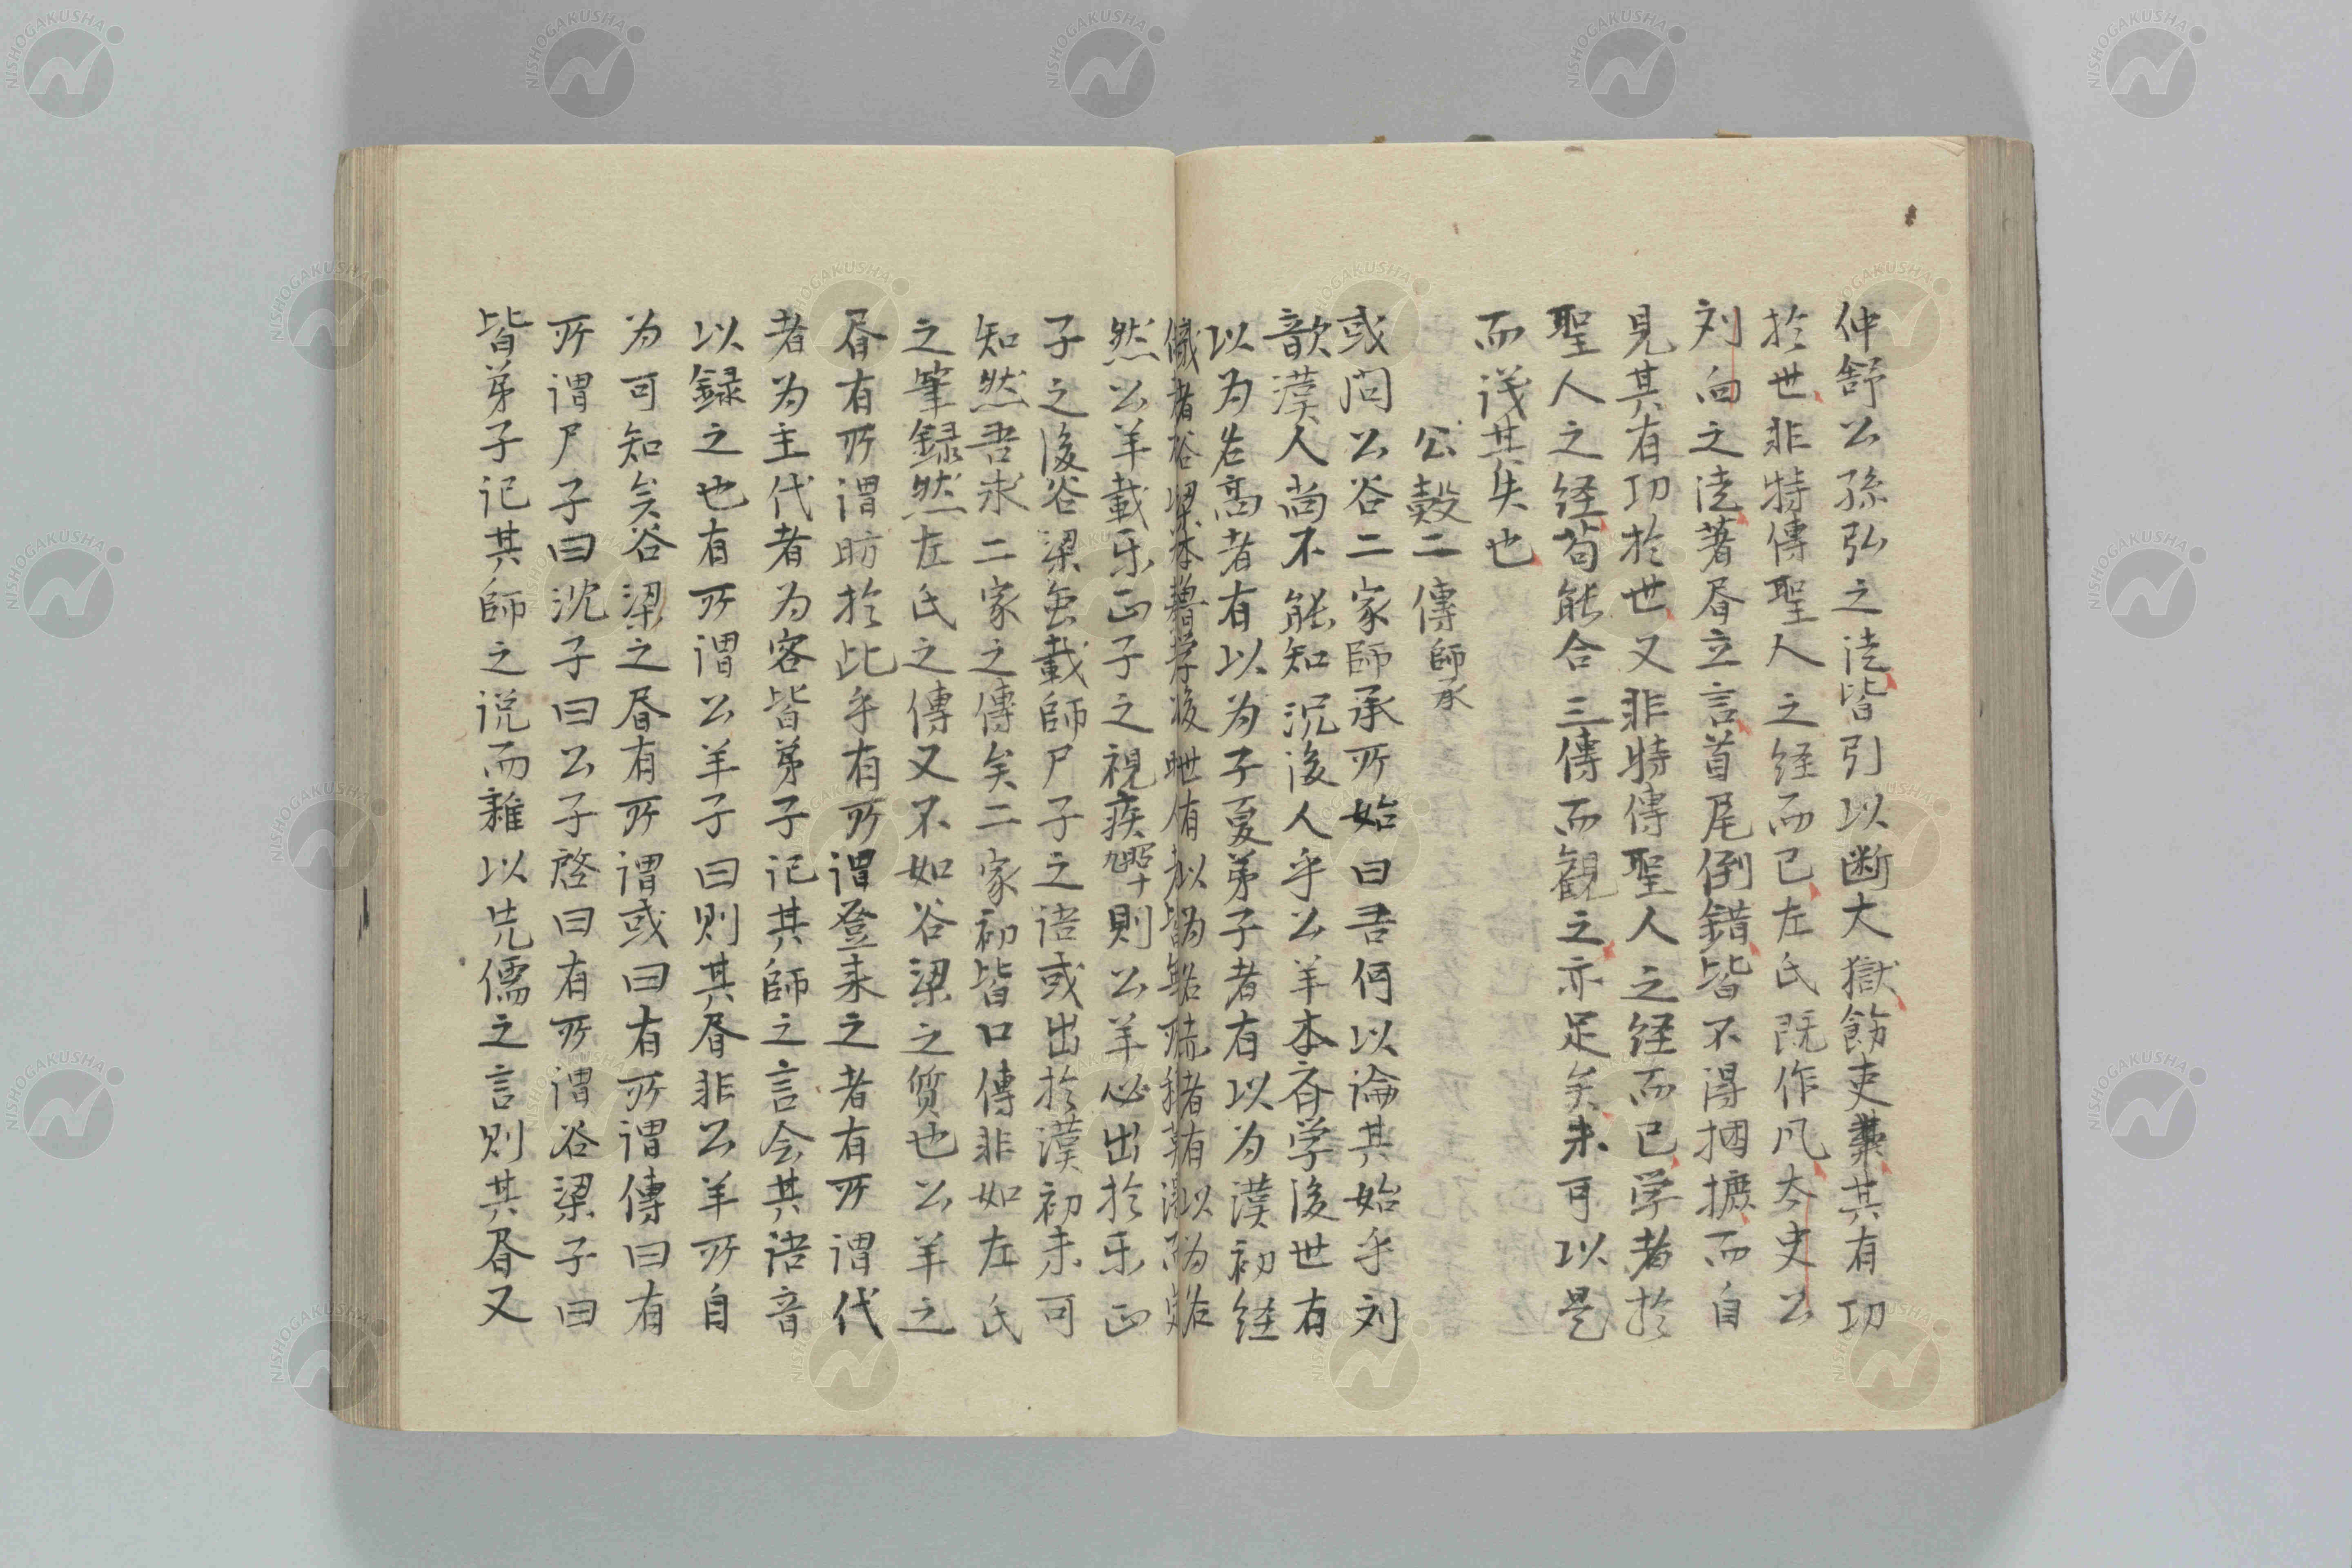 仲舒公孫弘之徒皆引以断大獄飭吏事其有功
於世非特傳聖人之経而已左氏既作凡太史公
刘向之徒著书立言首尾倒錯皆不得捃摭而自
見其有功於世又非特傳聖人之経而已学者於
聖人之経苟能合三傳而観之亦足矣未可以是
而浅其失也
公穀二傳師承
或问公谷二家師承所始曰吾何以論其始乎刘
歆漢人尚不能知况後人乎公羊本斉学後世有
以为名高者有以为子夏弟子者有以为漢初経
然公羊載乐正子之視疾則公羊必出於乐正
子之後谷梁虽載師尸子之语或出於漢初未可
知然吾求二家之傳矣二家初皆口傳非如左氏
之筆録然左氏之傳又不如谷梁之质也公羊之
书有所谓昉於此乎有所谓登来之者有所谓代
者为主代者为客皆弟子记其師之言会其语音
以録之也有所谓公羊子曰则其书非公羊所自
为可知矣谷梁之书有所谓或曰有所谓傳曰有
所谓尸子曰沈子曰公子启曰有所谓谷梁子曰
皆弟子记其師之说而雜以先儒之言则其书又
NISHOGAKUSHA